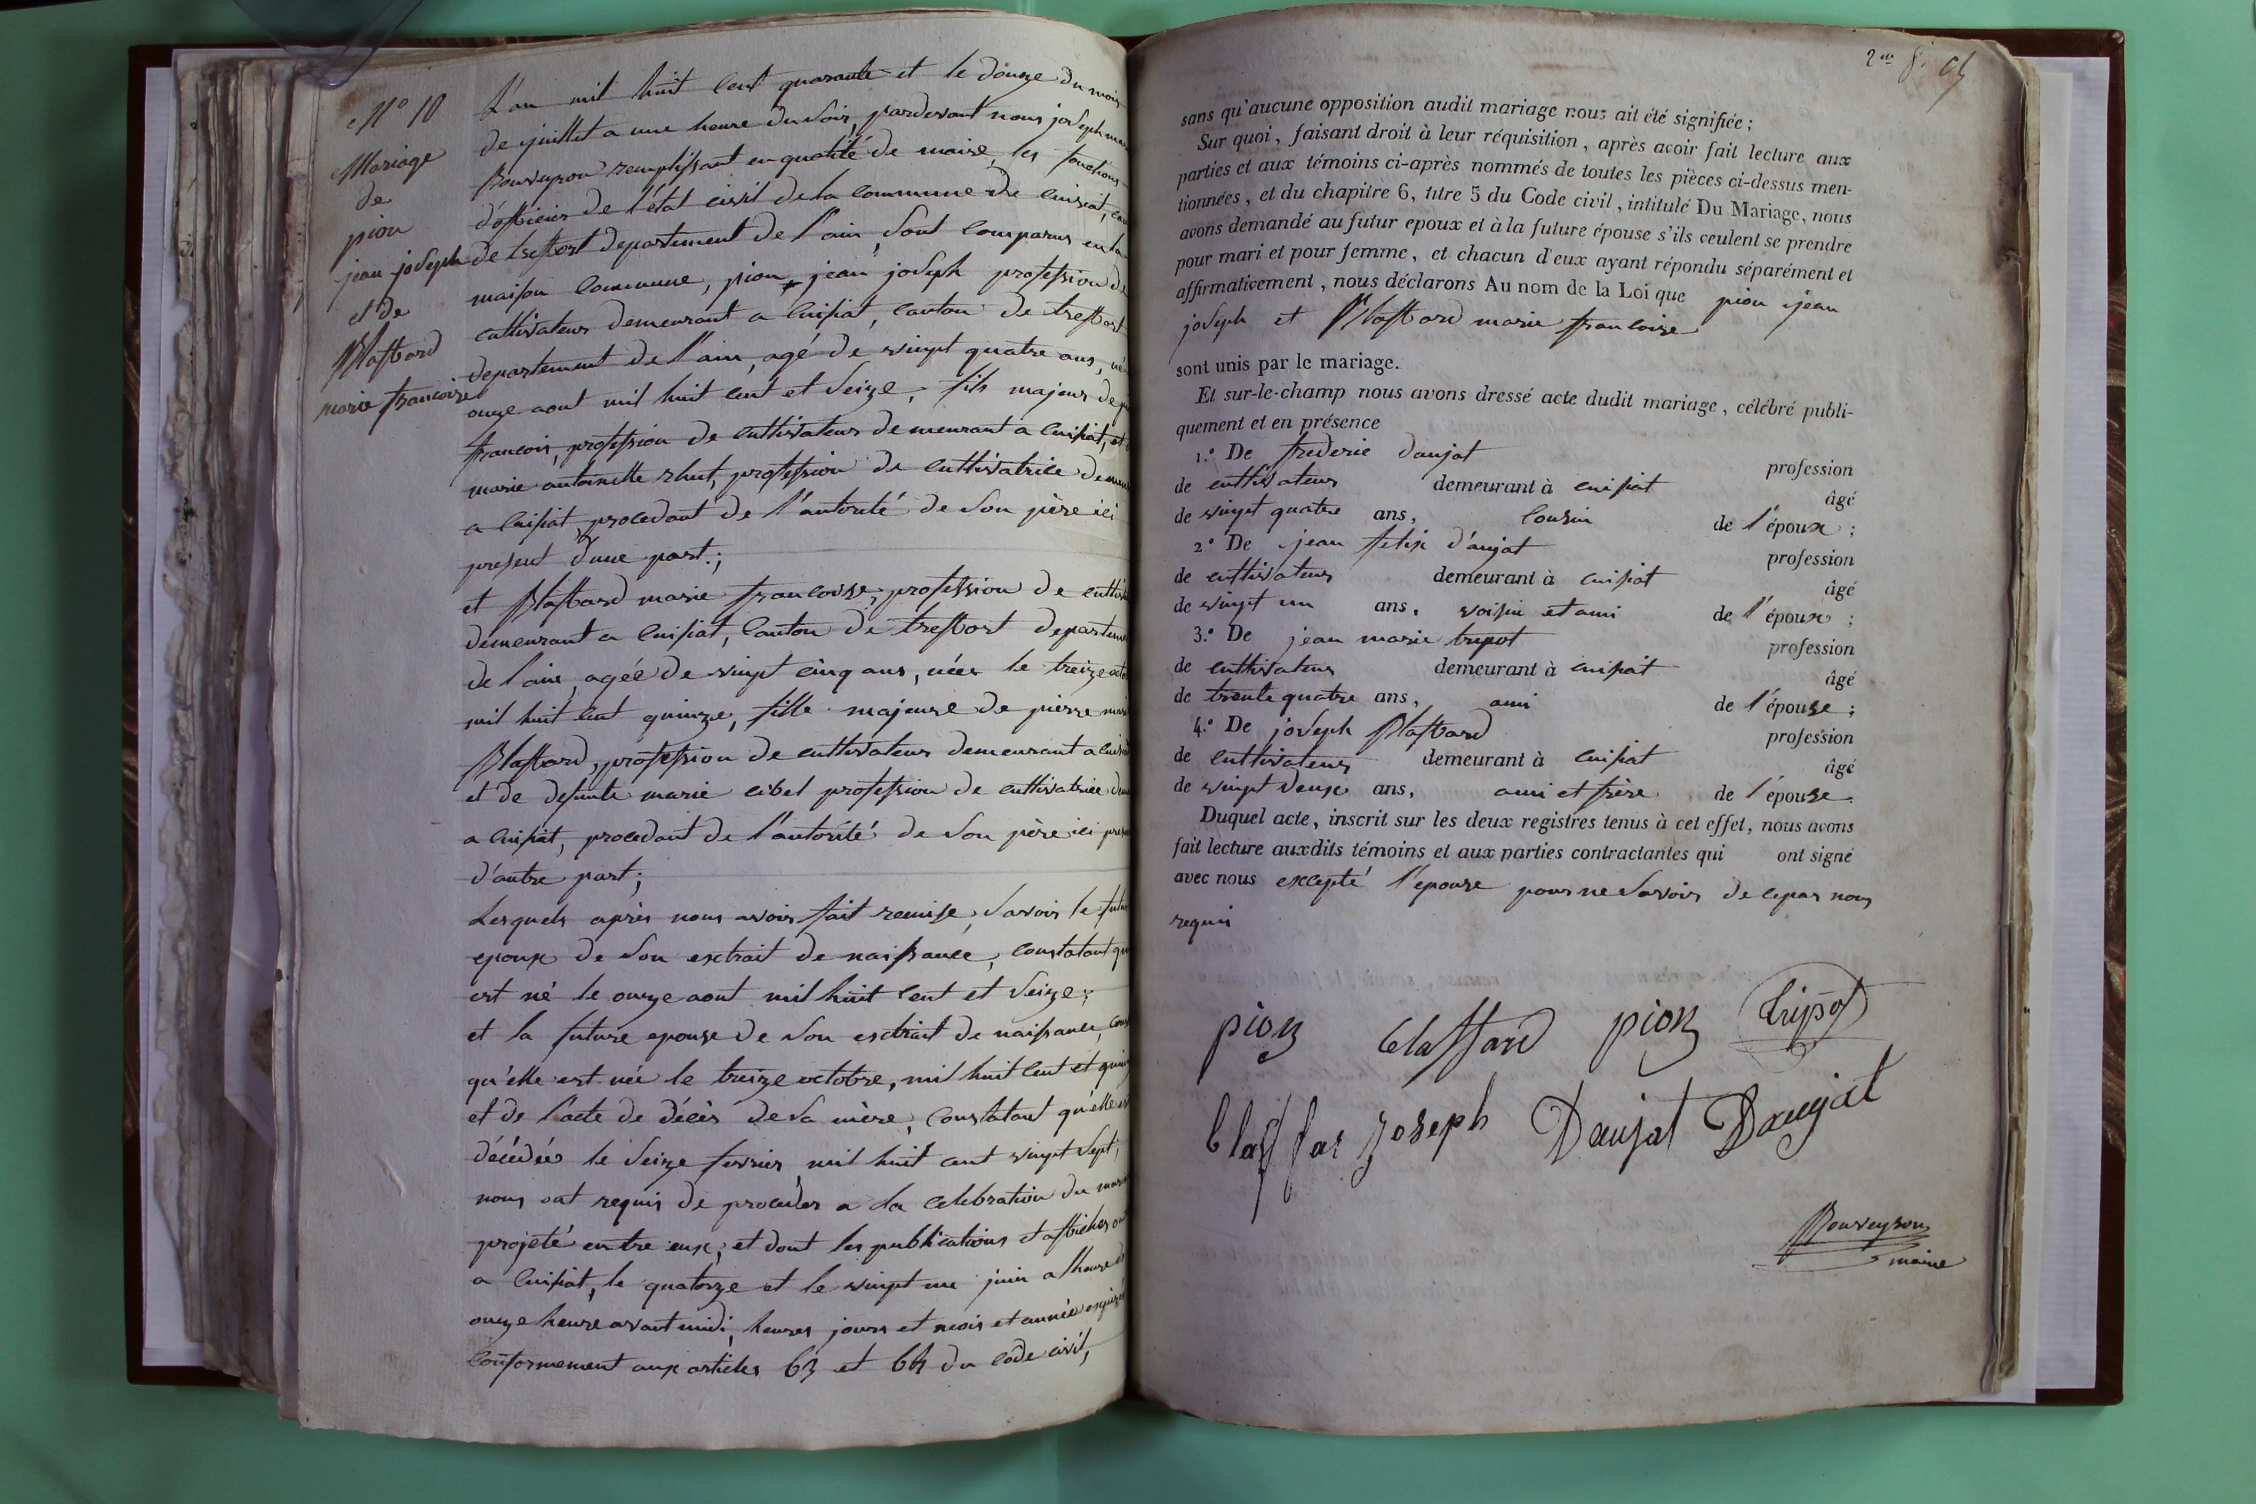 N° 10
Mariage
de
pion
jean joseph
et de
Blassard
marie francoise
L'an mil huit cent quarante et le douze du mois
de juillet a une heure du soir, pardevant nous joseph marie
Bouveyron remplissant en qualité de maire, les fonctions
d'officier de l'état civil de la commune de Cuisiat, can
de treffort departement de l'ain, sont comparus en la
maison commune, pion jean joseph profession de
cultivateur demeurant a Cuisiat, canton de treffort
departement de l'ain, agé de vingt quatre ans, né
onze aout mil huit cent et seize, fils majeur de
francois, profession de cultivateur demeurant a Cuisiat, et
marie antoinette profession de cultivatrice demeu
a Cuisiat procedant de l'autorité de son père ici
present d'une part.;
et Blassard marie francoise, profession de cultiv
demeurant a Cuisiat, Canton de treffort departeme
de l'ain, agée de vingt cinq ans, née le treize octo
mil huit cent quinze, fille majeure de pierre mari
Blassard, profession de cultivateur demeurant a Cuisi
et de defunte marie cibet profession de cultivatrice dem
a Cuisiat, procedant de l'autorité de son père ici pres
d'autre part;
Lesquels après nous avoir fait remise, savoir le futur
epoux de son extrait de naissance, constatant qu
est né le onze aout mil huit cent et seize;
et la future epouse de son extrait de naissance, cons
qu'elle est née le treize octobre, mil huit cent et quin
et de l'acte de décès de sa mère, constatant qu'elle es
décédée le seize fevrier mil huit cent vingt sept;
nous ont requis de proceder a la celebration du mari
projeté entre eux; et dont les publications et affiches on
a Cuisiat, le quatorze et le vingt un juin a l'heure de
onze heure avant midi, heures jours et mois et année
conformement aux articles 63 et 64 du code civil,
sans qu'aucune opposition audit mariage nous ait été signifiée;
Sur quoi, faisant droit à leur réquisition, après avoir fait lecture aux
parties et aux témoins ci-après nommés de toutes les pièces ci-dessus men-
tionnées, et du chapitre 6, titre 5 du Code civil, intitulé Du Mariage, nous
avons demandé au futur epoux et à la future épouse s'ils veulent se prendre
pour mari et pour femme, et chacun d'eux ayant répondu séparément et
affirmativement, nous déclarons Au nom de la Loi que pion jean
joseph et Blassard marie francoise
sont unis par le mariage.
Et sur-le-champ nous avons dressé acte dudit mariage, célébré publi-
quement et en présence
1.° De frederic daujat profession
de cultivateur demeurant à cuisiat âgé
de vingt quatre ans, Cousin de l'époux;
2.° De jean felix d'aujat profession
de cultivateur demeurant à cuisiat âgé
de vingt un ans, voisin et ami de l'époux;
3.° De jean marie tripot profession
de cultivateur demeurant à cuisiat âgé
de trente quatre ans, ami de l'épouse;
4.° De joseph Blassard profession
de cultivateur demeurant à cuisiat âgé
de vingt deux ans, ami et frère de l'épouse.
Duquel acte, inscrit sur les deux registres tenus à cet effet, nous avons
fait lecture auxdits témoins et aux parties contractantes qui ont signé
avec nous excepté l'epouse pour ne savoir de ce par nous
requis
pion blassard pion tripot
blassar joseph Daujat Daujat
Bouveyron
maire